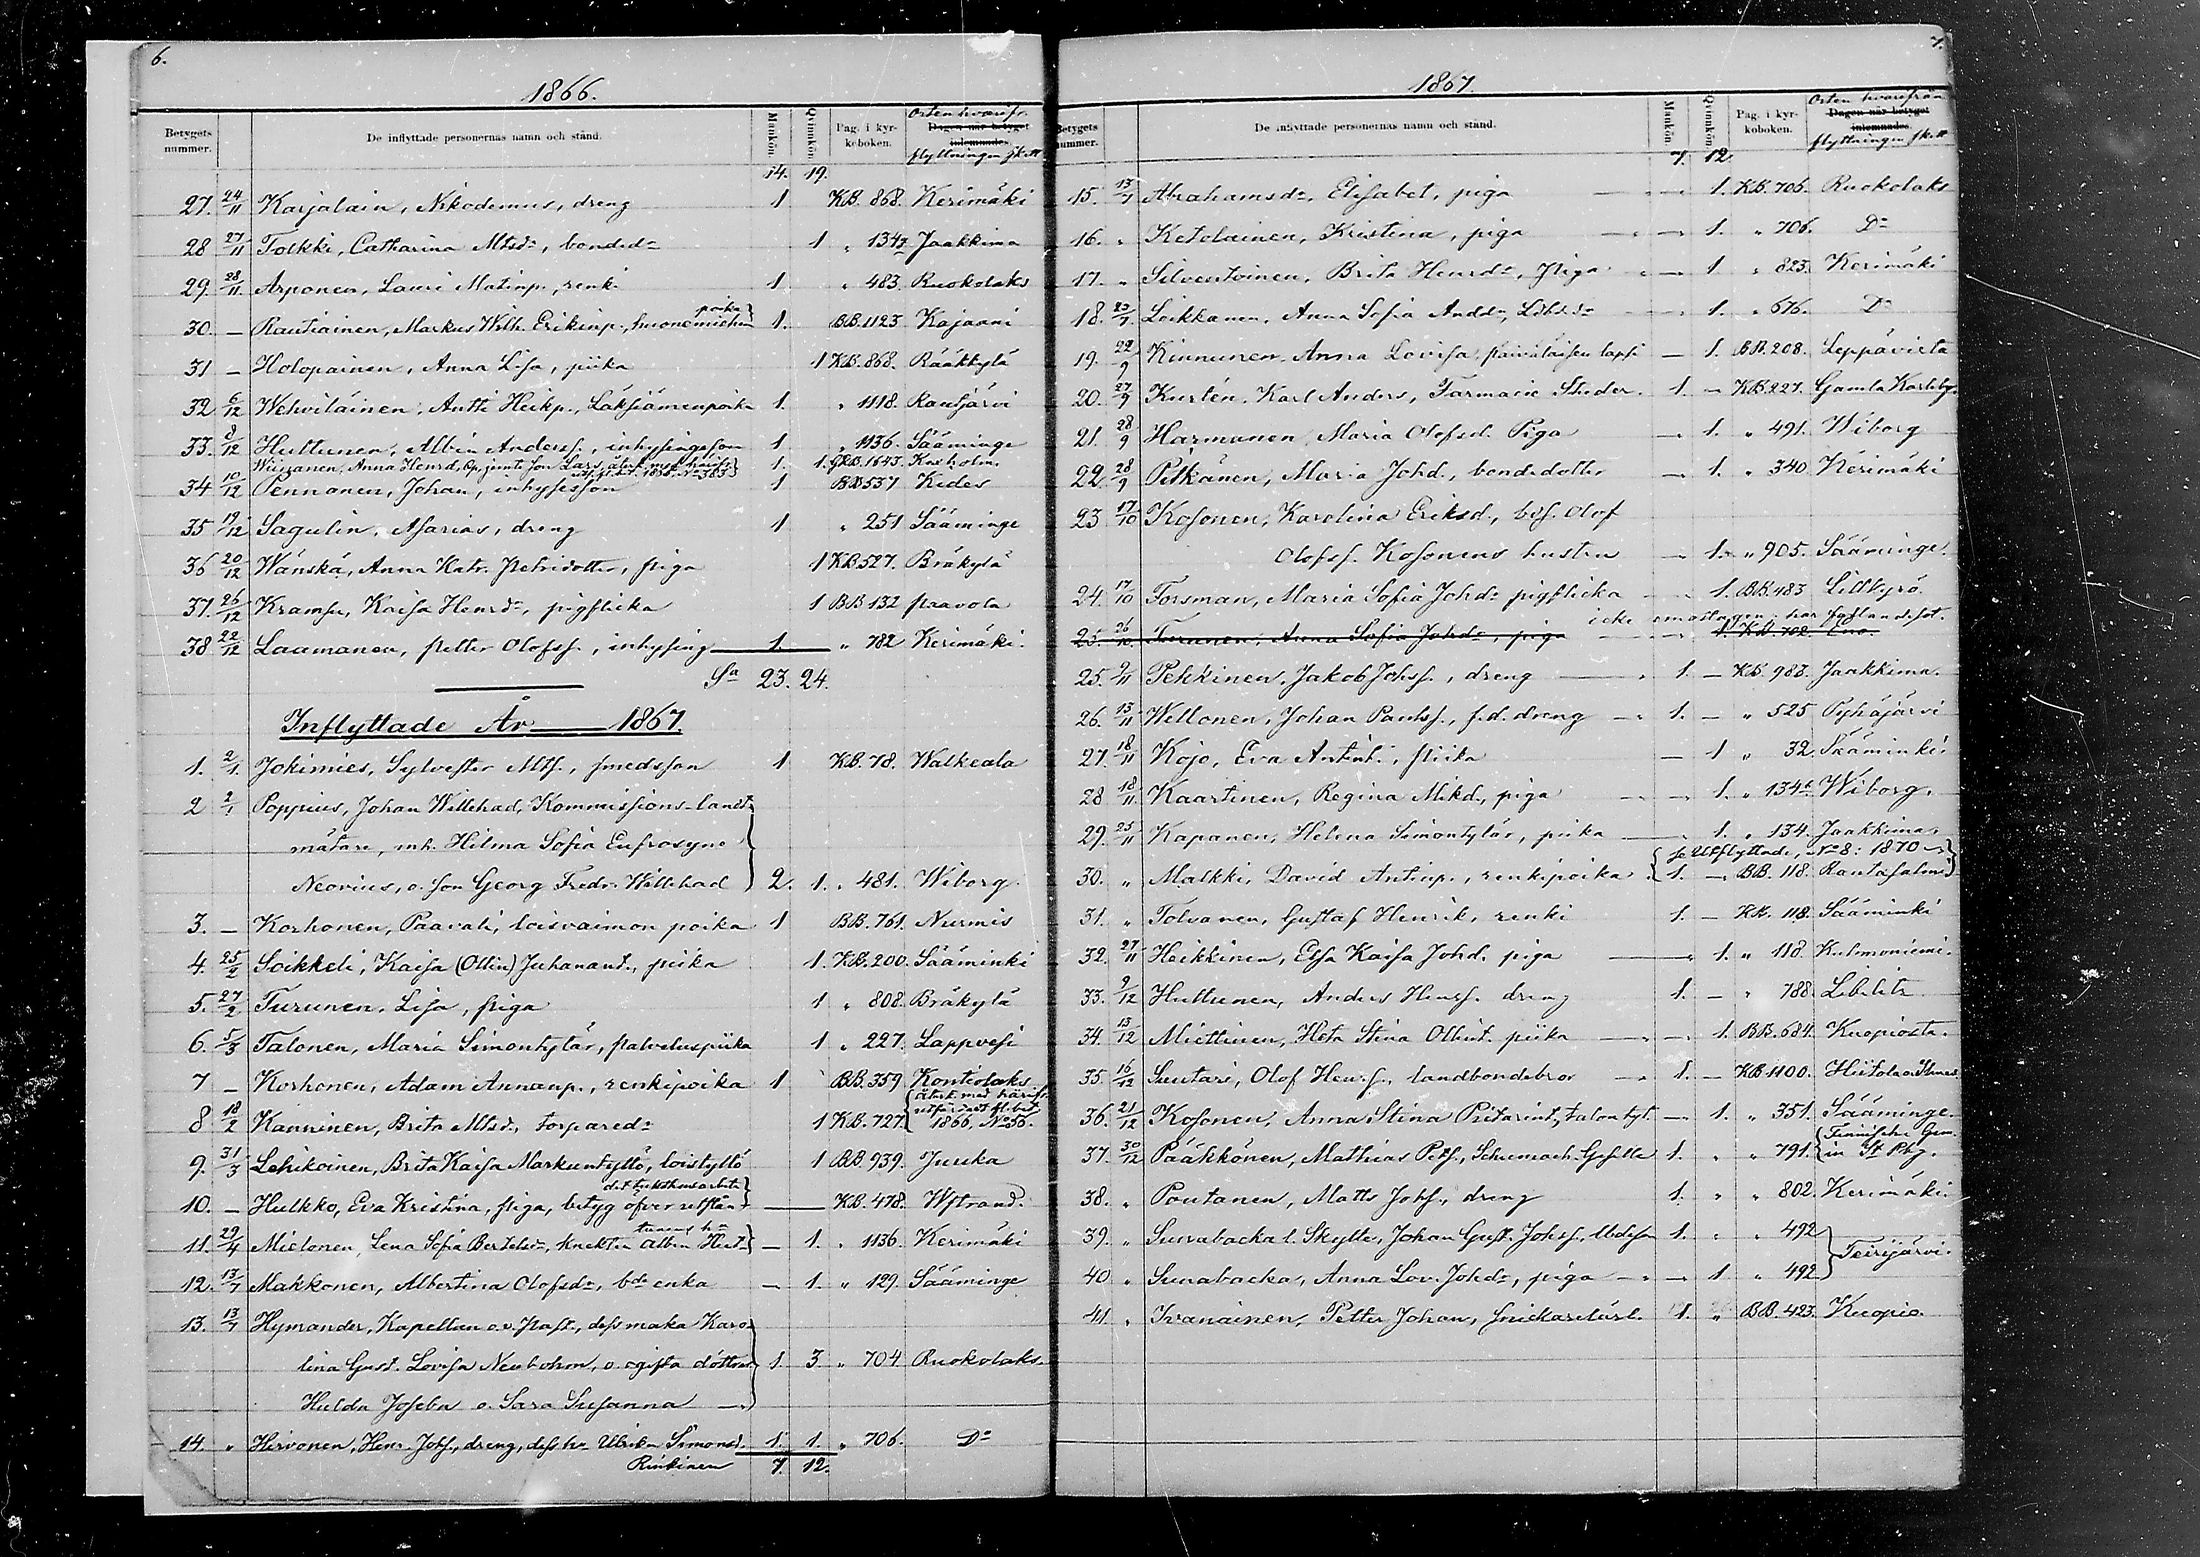 6.
1866.
Betygets nummer. De inflyttade personernas namn och stånd. Mankön. Qvinnkön. Pag. i kyrkoboken. Orten hvarifr. Dagen när betyget inlemnades. flyttningen skett
14. 19.
27. 24/11 Karjalain, Nikodemus, dreng 1 KB. 868. Kerimäki
28 27/11 Tolkki, Catharina Mtsdr, bondedr 1 " 1347 Jaakkima
29. 28/11 Arponen, Lauri Matinp., renki 1. " 483. Ruokolaks
30. — Rautiainen, Markus Wilh. Erikinp., huonemiehen poika 1. BB. 1123 Kajaani
31 — Holopainen, Anna Lisa, piika 1 KB. 868. Rääkkylä
32 6/12 Wehviläinen, Antti Heikp., Läksiämenpoika 1. " 1118. Rautjärvi
33. 8/12 Huttunen, Albin Andersf., inhysingsson 1 " 1136. Sääminge
Anna Henrd, 1. 1. 1643. Kexholm.
34 10/12 Pennanen, Johan, inhysesson 1 BB 537 Kides
35 19/12 Sagulin, Asarias, dreng 1. " 251 Sääminge
36 20/12 Wänskä, Anna Katr. Petridotter, piga 1 KB. 527. Bräkylä
37. 26/12 Kramsu, Kaisa Henrdr, pigflicka 1 BB 132 Paavola
38 22/12 Laamanen, Petter Olofsf., inhysing 1. " 782 Kerimäki.
Sa 23. 24.
Inflyttade År 1867.
1. 2/1. Jokimies, Sylvester Mtsf., smedsson 1 KB. 78. Walkeala
2 2/1 Poppius, Johan Willehad, Kommissions-landt-
mätare, m.h. Hilma Sofia Eufrosyne
Neovius, o. son Georg Fredr. Willehad 2. 1. " 481. Wiborg.
3. — Korhonen, Paavali, loisvaimon poika 1 BB. 761. Nurmis
4. 25/2 Soikkeli, Kaisa (Ollin) Juhanant., piika 1. KB. 200. Sääminki
5. 27/2 Turunen, Lisa, piga 1 " 808. Bräkylä
6. 5/3 Talonen, Maria Simontytär, palveluspiika 1 " 227. Lappvesi
7 — Korhonen, Adam Annanp., renkipoika 1 BB. 359 Kontiolaks.
8 18/2 Kanninen, Brita Mtsd., torparedr 1 KB. 727. 1866, No 55.
9. 31/3 Lehikoinen, Brita Kaisa Markuntyttö, loistyttö 1 BB. 939. Juuka
10. — Hulkko, Eva Kristina, piga, betyg öfver utstån- det tukthusarbete — KB. 478. Wstrand.
11. 29/4 Mietonen, Lena Sofia Bertelsdr, knekten Albin Hut- tunens hu — 1. " 1136. Kerimäki
12. 13/7 Makkonen, Albertina Olofsdr, bde enka — 1. " 129. Sääminge
13. 13/7 Hymander, Kapellan o. v. Past., dess maka Karo-
lina Gust. Lovisa Neubohm, o. ogifta döttrar 1 3 " 704 Ruokolaks.
Hulda Josefa o. Sara Susanna
14. " Hirvonen, Henr. Johsf., dreng, dess hu Ulrika Simonsd. 1. 1. " 706. Do
Rinkinen 7. 12.
7.
1867.
Betygets nummer. De inflyttade personernas namn och stånd. Mankön. Qvinnkön. Pag. i kyrkoboken. Orten hvarifrån Dagen när betyget inlemnades. flyttningen skett
7. 12.
15. 13/7 Abrahamsdr, Elisabet, piga 1. KB. 706. Ruokolaks
16. " Ketolainen, Kristina, piga 1. " 706. Do
17. " Silventoinen, Brita Henrdr, Piga 1 " 823. Kerimäki
18. Loikkanen, Anna Sofia Anddr, 1. " 676. Do
19. 22/9 Kinnunen, Anna Lovisa, päiväläisen lapsi — 1. BB. 208. Leppävirta
20. 27/9 Kurtén, Karl Anders, Farmacie Studer. 1. — KB. 227. Gamla Karleby.
21. 28/9 Harmunen Maria Olofsd. Piga 1. " 491. Wiborg
22. 28/9 Pitkänen, Maria Johd., bondedotter 1. " 340. Kerimäki
23 17/10 Kosonen, Karolina Eriksd., bds. Olof
Olofsf. Kosonens hustru 1. " 905. Sääminge.
24. 17/10 Forsman, Maria Sofia Johdr pigflicka 1. BB. 483 Lillkyrö.
icke emottagen, har
25. 26/10 Turunen, Anna Sofia Johdr, piga 1 KB 702 Eno.
25. 9/11 Pekkinen, Jakob Johsf., dreng 1. — KB. 983. Jaakkima.
26. 13/11 Wellonen, Johan Paulsf., f.d. dreng 1. — " 525 Pyhäjärvi
27. 18/11 Kojo, Eva Antint., piika 1 " 32 Sääminki.
28 18/11 Kaartinen, Regina Mikd., piga 1. " 134 Wiborg.
29. 25/11 Kapanen, Helena Simontytär, piika 1. " 134. Jaakkima.
se Utflyttade, No 8: 1870
30. " Malkki, David Antinp., renkipoika 1. — BB. 118. Rantasalmi
31. " Tolvanen, Gustaf Henrik, renki 1. — KB. 118. Sääminki
32. 27/11 Heikkinen, Elsa Kaisa Johd. piga 1. " 118. Kulmoniemi.
33. 9/12 Huttunen, Anders Henrsf. dreng 1. — " 788. Libelits
34. 13/12 Miettinen, Heta Stina Ollint. piika 1. BB. 684. Kuopiosta.
35. 16/12 Suutari, Olof Henrsf., landbondebror 1. — KB 1100. Hiitola o. Ilmes.
36. 21/12 Kosonen, Anna Stina Pitarint, talontyt. 1. " 351. Sääminge.
37. 30/12 Pääkkönen, Mathias Petsf., Schumach. Geselle 1. " " 791. Finnische Gem. in St. Pbg.
38. " Poutanen, Matts Johsf., dreng 1. " " 802. Kerimäki.
39. " Sunabacka l. Skytte, Johan Gust. Johsf., 1. " " 492
40 " Sunabacka, Anna Lov. Johdr, piga 1 " 492 Teirijärvi.
41. " Ivanainen, Petter Johan, snickarelärl. 1. " BB. 423. Kuopio.